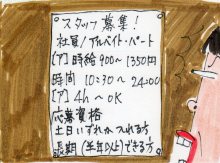 スタッフ募集!
社員/アルバイト・パート
[ア]時給900~1350円
時間 10:30~24:00
[ア]4h~OK
応募資格
土日いずれか入れる方
長期(半年以上)できる方